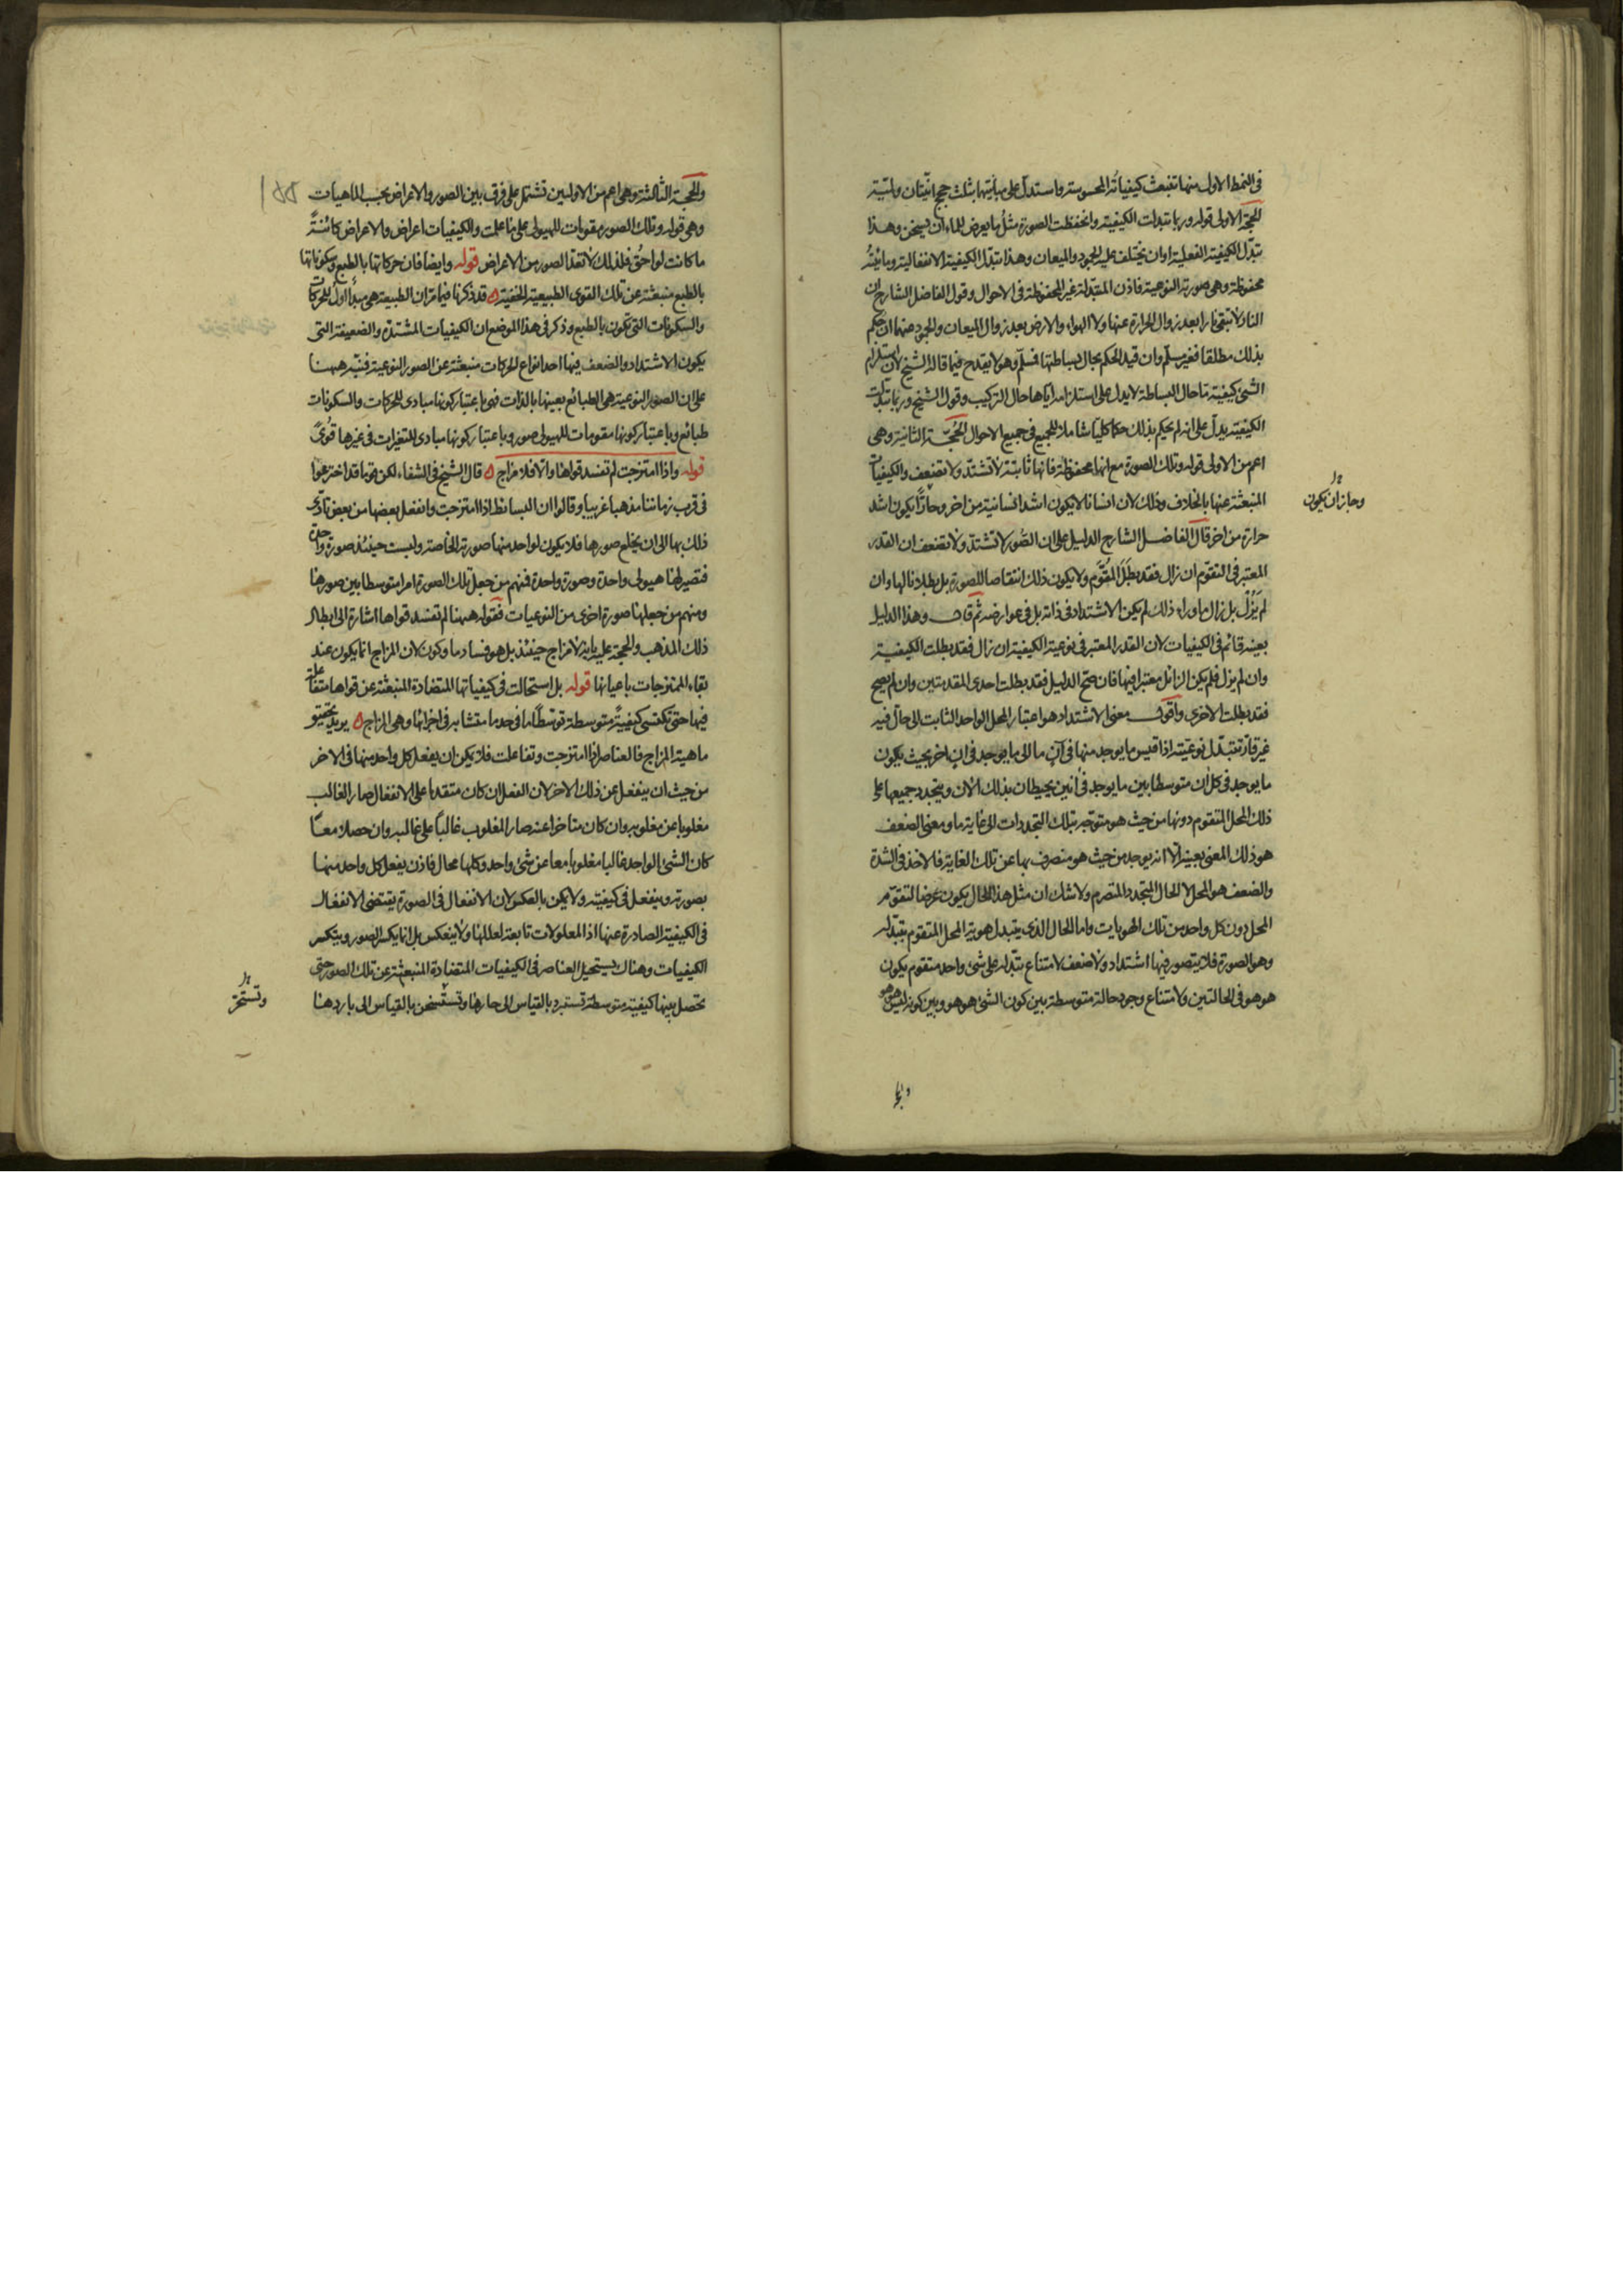 فى النمط الاول منها تنبعث كيفياته المحسوسة واستدل على مباينتها بثلث حجج انيتان ولمية
الحجة الاولى قوله وربما تبدلت الكيفية وانحفظت الصورة مثل ما يعرض للماء ان يسخن وهذا
تبدل الكيفية الفعلية او ان يختلف عليه الجمود والميعان وهذا تبدل الكيفية الانفعالية ومائيته
محفوظة وهى صورته النوعية فاذن المتبدلة غير المحفوظة فى الاحوال وقول الفاضل الشارح ان
النار لا تبقى نارا بعد زوال الحرارة عنها ولا الهواء والارض بعد زوال الميعان والجمود عنهما ان حكم
بذلك مطلقا فغير مسلم وان قيد الحكم بحال بساطتها فمسلم وهو لا يقدح فيما قاله الشيخ لان استلزام
الشئ كيفية ما حال البساطة لا يدل على استلزامه اياها حال التركيب وقول الشيخ وربما تبدلت
الكيفية يدل على انه لم يحكم بذلك حكما كليا شاملا للجميع فى جميع الاحوال الحجة الثانية وهى
اعم من الاولى قوله وتلك الصورة مع انها محفوظة فانها ثابتة لا تشتد ولا تضعف والكيفيات
المنبعثة عنها بالخلاف وذلك لان انسانا لا يكون اشد انسانية من اخر وحارا يكون اشد
وجاز ان يكون
حرارة من اخر قال الفاضل الشارح الدليل على ان الصور لا تشتد ولا تضعف ان القدر
المعتبر فى التقوم ان زال فقد بطل المتقوم ولا يكون ذلك انتقاصا للصورة بل بطلانا لها وان
لم يزل بل زال ما وراء ذلك لم يكن الاشتداد فى ذاته بل فى عوارضه ثم قال وهذا الدليل
بعينه قائم فى الكيفيات لان القدر المعتبر فى نوعية الكيفية ان زال فقد بطلت الكيفية
وان لم يزل فلم يكن الزائل معتبرا فيها فان صح الدليل فقد بطلت احدى المقدمتين وان لم يصح
فقد بطلت الاخرى واقول معنى الاشتداد هو اعتبار المحل الواحد الثابت الى حال فيه
غير قار تتبدل نوعيته اذا قيس ما يوجد منها فى آن ما الى ما يوجد فى ان اخر بحيث يكون
ما يوجد فى كل ان متوسطا بين ما يوجد فى انين يحيطان بذلك الان ويتجدد جميعها على
ذلك المحل المتقوم دونها من حيث هو متوجه بتلك التجددات الى غاية ما ومعنى الضعف
هو ذلك المعنى بعينه الا انه يوجد من حيث هو منصرف بها عن تلك الغاية فالاخذ فى الشدة
والضعف هو المحل لا الحال المتجدد المتصرم ولا شك ان مثل هذا الحال يكون عرضا لتقوم
المحل دون كل واحد من تلك الهويات واما الحال الذى يتبدل هوية المحل المتقوم بتبدله
وهو الصورة فلا يتصور فيها اشتداد ولا ضعف لامتناع تبدله على شئ واحد متقوم يكون
هو هو فى الحالتين ولامتناع وجود حالة متوسطة بين كون الشئ هو هو وبين كونه ليس هو هو
والحجة الثالثة وهى اعم من الاوليين تشتمل على فرق بين الصور والاعراض بحسب الماهيات
وهى قوله وتلك الصورة مقومات للهيولى على ما علمت والكيفيات اعراض والاعراض كائنة
ما كانت لواحق فلذلك لا تعد الصور من الاعراض قوله وايضا فان حركاتها بالطبع وسكوناتها
بالطبع منبعثة عن تلك القوى الطبيعية الخفية قد ذكرنا فيما مر ان الطبيعة هى مبدأ اول للحركات
والسكونات التى تكون بالطبع وذكر فى هذا الموضع ان الكيفيات المشتدة والضعيفة التى
يكون الاشتداد والضعف فيها احد انواع الحركات منبعثة عن الصور النوعية فنبه ههنا
على ان الصور النوعية هى الطبائع بعينها بالذات فهى باعتبار كونها مبادى للحركات والسكونات
طبائع وباعتبار كونها مقومات للهيولى صور وباعتبار كونها مبادى للتغيرات فى غيرها قوى
قوله واذا امتزجت لم تفسد قواها والا فلا مزاج قال الشيخ فى الشفاء لكن قوما قد اخترعوا
فى قرب زماننا مذهبا غريبا وقالوا ان البسائط اذا امتزجت وانفعل بعضها من بعض تادى
ذلك بها الى ان يخلع صورها فلا يكون لواحد منها صورته الخاصة ولبست حينئذ صورة واحدة
فتصير لها هيولى واحدة وصورة واحدة فمنهم من جعل تلك الصورة امرا متوسطا بين صورها
ومنهم من جعلها صورة اخرى من النوعيات فقوله ههنا لم تفسد قواها اشارة الى ابطال
ذلك المذهب والحجة عليه بانه لا مزاج حينئذ بل هو فساد ما وكون لان المزاج انما يكون عند
بقاء الممتزجات باعيانها قوله بل استحالت فى كيفياتها المتضادة المنبعثة عن قواها متفاعلة
فيها حتى تكتسى كيفية متوسطة توسطا ما فى حد ما متشابه فى اجزائها وهى المزاج يريد تحقيق
ماهية المزاج فالعناصر اذا امتزجت وتفاعلت فلا يمكن ان يفعل كل واحد منها فى الاخر
من حيث ان ينفعل عن ذلك الاخر لان الفعل ان كان متقدما على الانفعال صار الغالب
مغلوبا عن مغلوبه وان كان متاخرا عنه صار المغلوب غالبا على غالبه وان حصلا معا
كان الشئ الواحد غالبا مغلوبا معا عن شئ واحد وكلها محال فاذن يفعل كل واحد منها
بصورته وينفعل فى كيفيته ولا يمكن بالعكس لان الانفعال فى الصورة يقتضى الانفعال
فى الكيفية الصادرة عنها اذ المعلولات تابعة لعللها ولا ينعكس بل انما يكسر الصور وينكسر
الكيفيات وهناك يستحيل العناصر فى الكيفيات المتضادة المنبعثة عن تلك الصور حتى
تحصل بينها كيفية متوسطة تستبرد بالقياس الى حارها وتستسخن بالقياس الى باردها